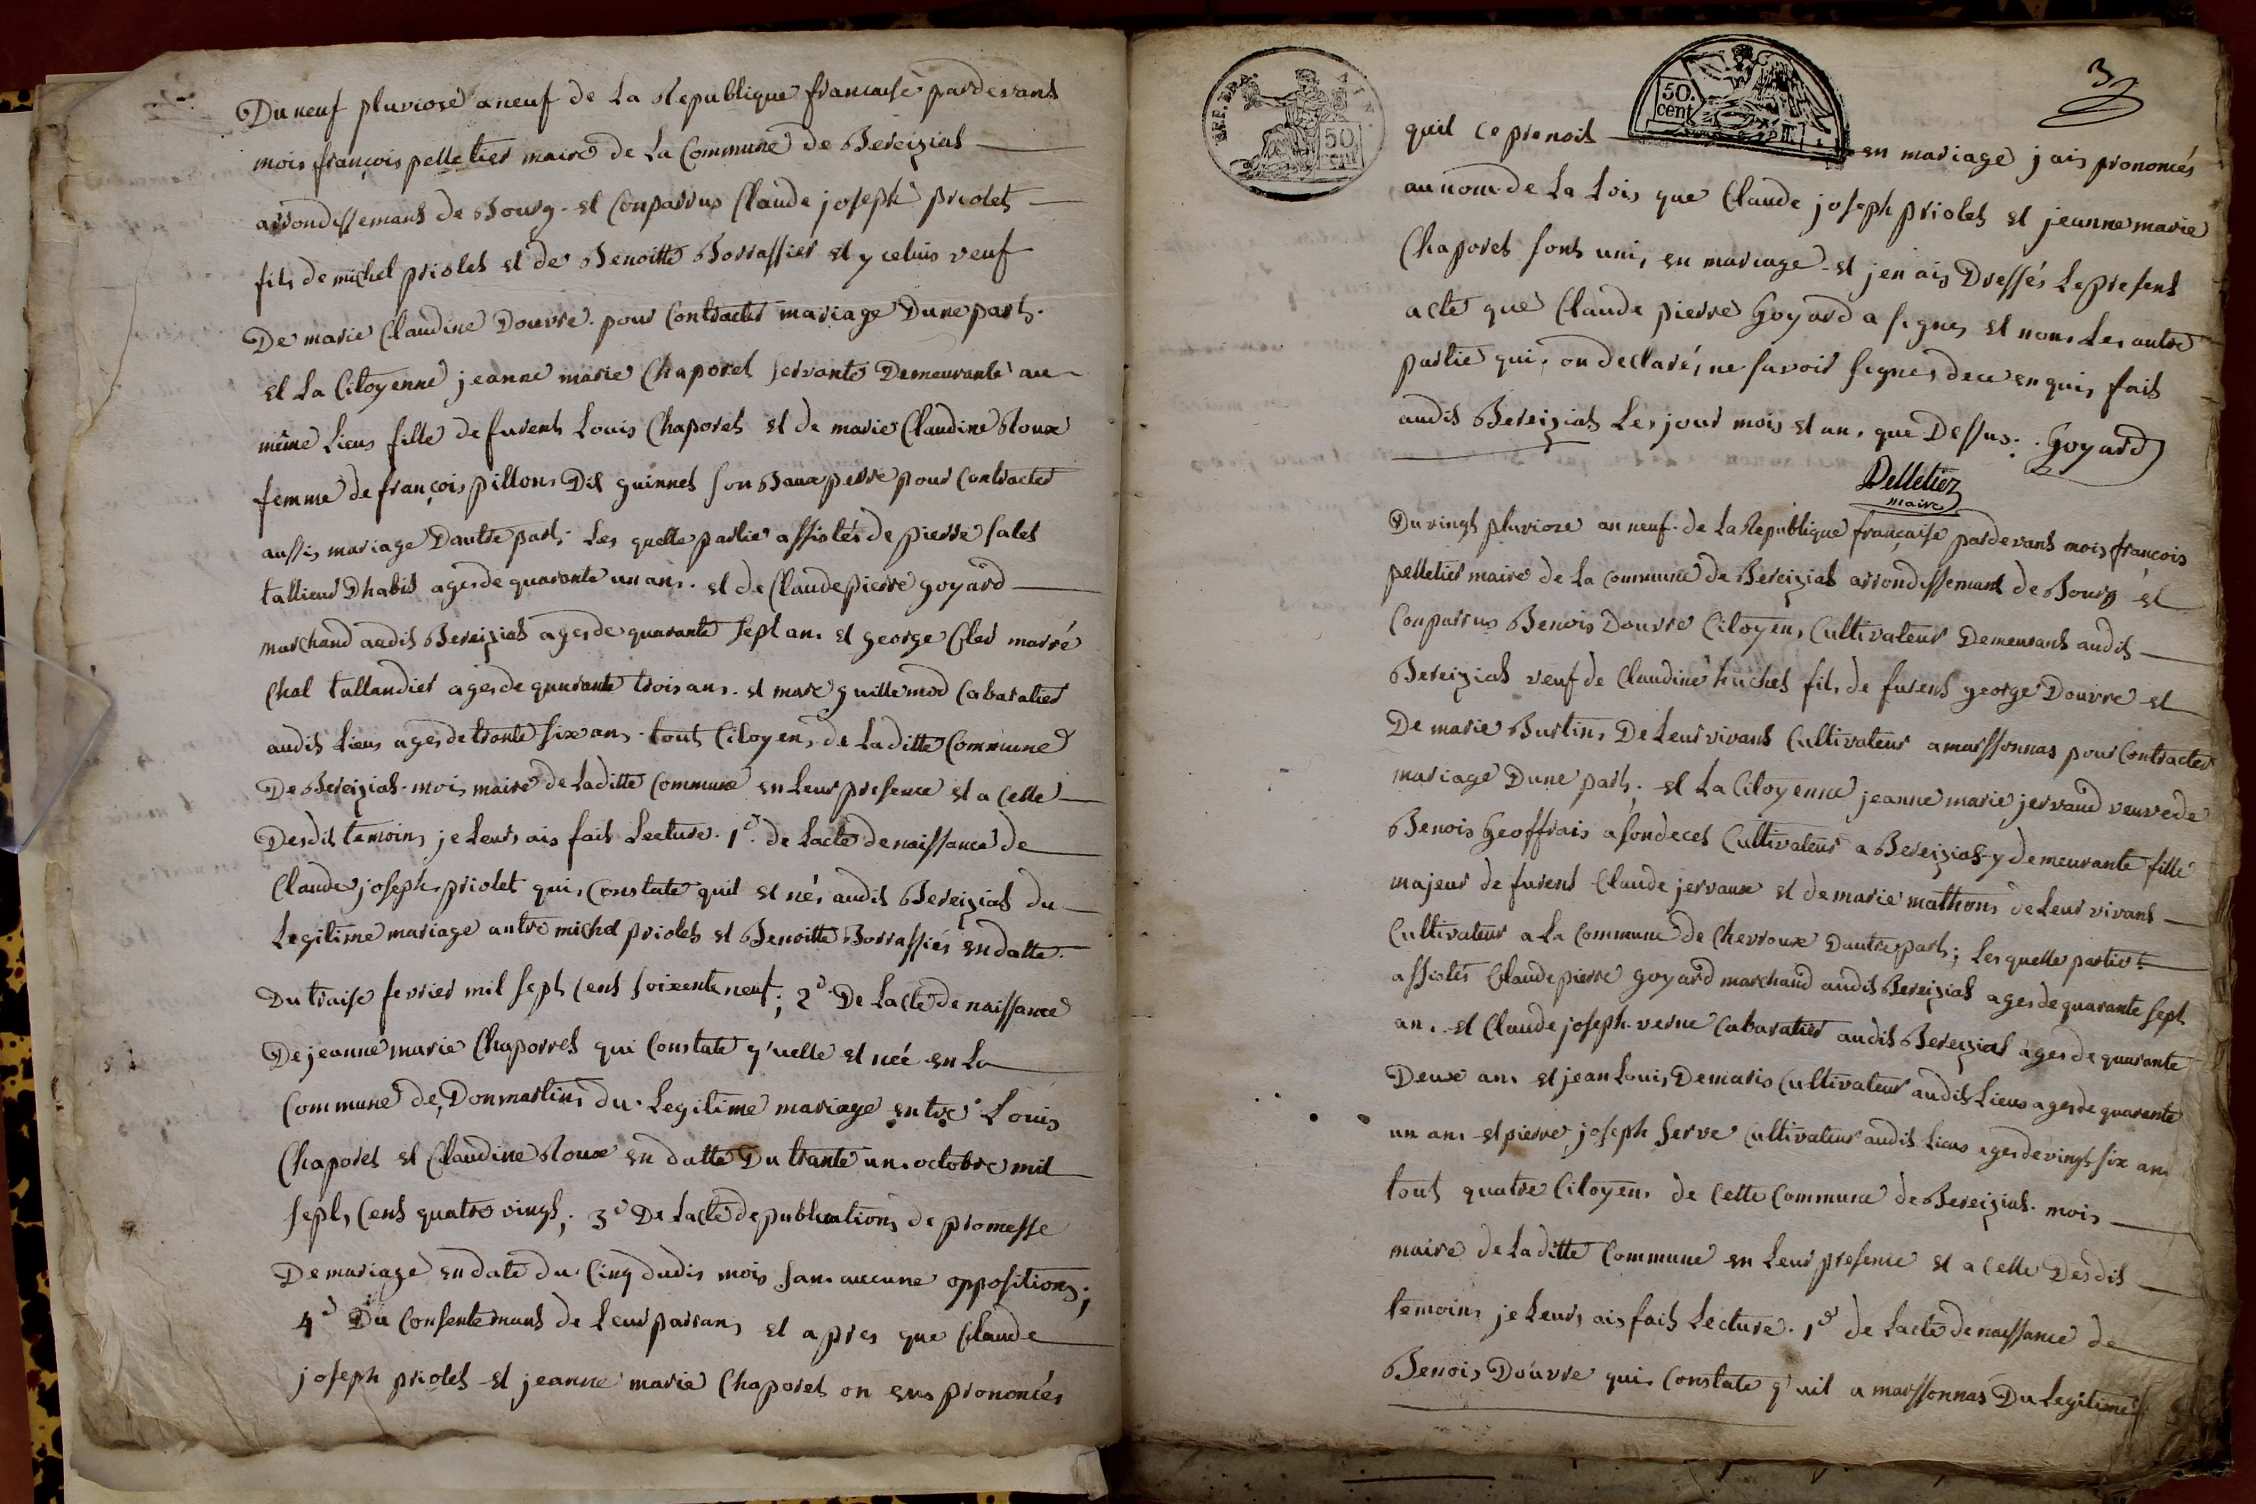 Du neuf pluviose a neuf de La Republique francaise pardevant
mois françois pelletier maire de La Commune de Bereiziat
arrondissemant de Bourg et Conparrus Claude joseph priolet
fils de michel priolet et de Benoitte Borrassier et y celuis veuf
De marie Claudine Douvre pour Contracter mariage Dune part.
et La Citoyenne jeanne marie Chaporet servante Demeurante au
même Lieus fille de furent Louis Chaporet et de marie Claudine Roux
femme de françois pillons Dit guinnet son Baux perre pour Contracter
aussis mariage Dautre part. Les quelle partie assistés de pierre salet
tallieur Dhabit ages de quarante un ans. et de Claude pierre goyard
marchand audit Bereiziat ages de quarante sept ans et george Cler marré
Chal tallandier ages de quarante trois ans. et marc guillemod Cabaratier
audit Lieus ages de trante six ans. tout Citoyens de La ditte Commune
De Bereiziat. mois maire de La ditte Commune en Leur presence et a Celle
Desdit temoins je Leurs ais fait Lecture. 1e. de Lacte de naissance de
Claude joseph priolet qui Constate quil et nés audit Bereiziat du
Legitime mariage antre michel priolet et Benoitte Borrassies en datte
Du traise fevrier mil sept Cent soixente neuf; 2e De Lacte de naissance
De jeanne marie Chaporret qui Constate q'uelle et neé en La
Commune de Donmartins du Legitime mariage entre Louis
Chaporet et Claudine Roux en datte Du trante un octobre mil
sept Cent quatre vingt; 3e De Lacte de publications de promesse
De mariage en date du Cinq dudis mois sans aucune oppositions;
4e Du Consentemant de Leur parrans et apres que Claude
joseph priolet et jeanne marie Chaporet on eus prononcés
3
50.
cent
50
quil ce prenoit en mariage jais prononcés
au nom de La Lois que Claude joseph priolet et jeanne marie
Chaporet sont unis en mariage et jen ais Dressés Le present
acte que Claude pierre Goyard a signes et nons Les autre
partie qui on declarés ne savoir signes de ce enquis fait
audit Bereiziat Les jour mois et ans que Dessus. Goyard
Pelletier
maire
Du vingt pluvioze an neuf de La Republique française pardevant mois françois
pelletier maire de La Commune de Bereiziat arrondissemant de Bourg et
Conparrus Benois Douvre Citoyens Cultivateur Demeurant audit
Bereiziat veuf de Claudine huchet fils de furent george Douvre et
De marie Burtins De Leur vivant Cultivateur a marssonnas pour Contracter
mariage Dune part. et La Citoyenne jeanne marie jervaud veuve de
Benois Geoffrais a son deces Cultivateur a Bereiziat y demeurante fille
majeur de furent Claude jervaux et de marie mathons de Leur vivant
Cultivateur a La Commune de Chevroux Dautre part; Les quelle partie
assistés Claude pierre goyard marchand audit Bereiziat ages de quarante sept
ans. et Claude joseph verne Cabaratier audit Bereiziat ages de quarante
Deux ans et jean Louis Demaris Cultivateur audit Lieus ages de quarente
un ans et pierre joseph serve Cultivateur audit Lieus ages de vingt six ans
tout quatre Citoyens de Cette Commune de Bereiziat. mois
maire de La ditte Commune en Leur presence et a Celle Desdit
temoins je Leurs ais fait Lecture. 1e de Lacte de naissance de
Benois Douvre qui Constate q'uil a marssonnas Du Legitime